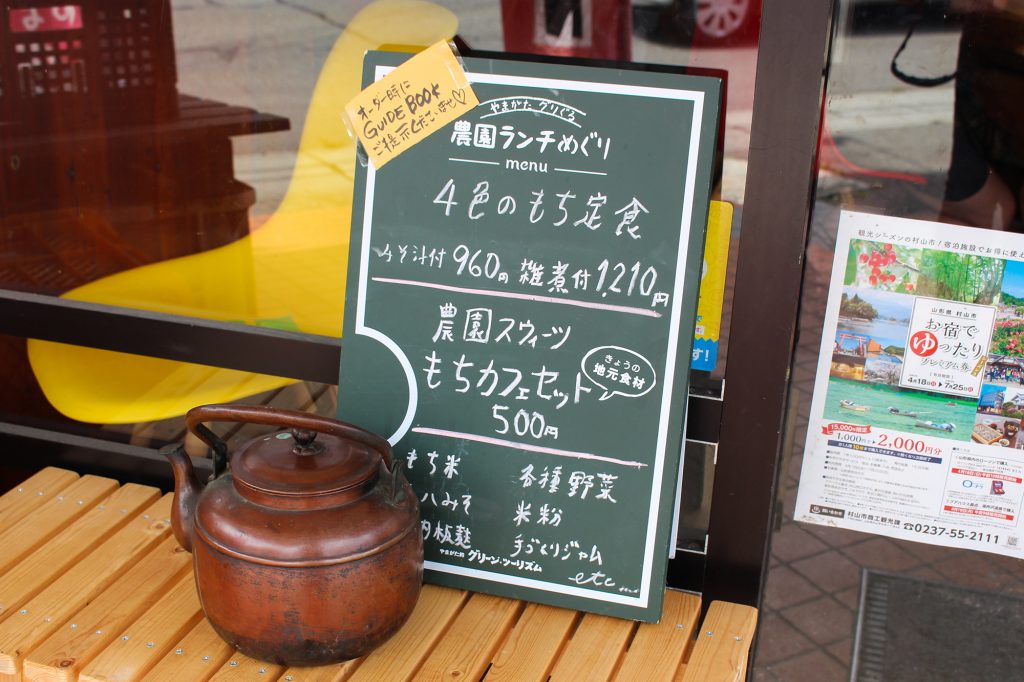 オーダー時に
GUIDE BOOK
ご提示くださいませ♡
やまがた グリぐる
農園ランチめぐり
menu
4色のもち定食
みそ汁付960円 雑煮付1,210円
農園スウィーツ
もちカフェセット
500円
きょうの
地元食材
もち米
各種野菜
米粉
手づくりジャム
etc
やまがた的 グリーン・ツーリズム
観光シーズンの村山市！宿泊施設でお得に使え
山形県 村山市
お宿で
ゆったり
プレミアム券
4月18日 7月25日
15,000枚限定
1,000円 2,000円
村山市商工観光課 ☎0237-55-2111